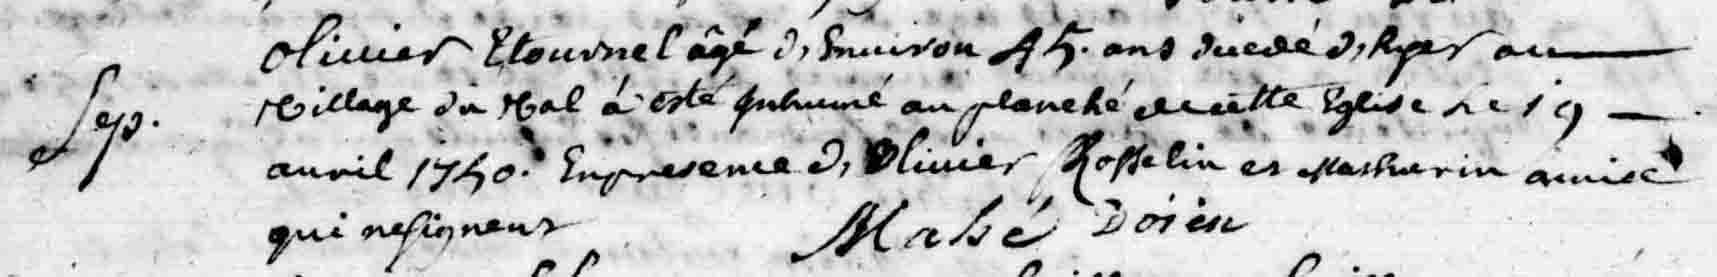 olivier Etournel âgé d'Environ 45. ans diecdé d'hyer au
Sep. Village du Val á esté Inhumé au planché de cette Eglise Le 19
avril 1740. En presence d'Olivier Rosselin et Mathurin
qui ne signent Mahé Doïen